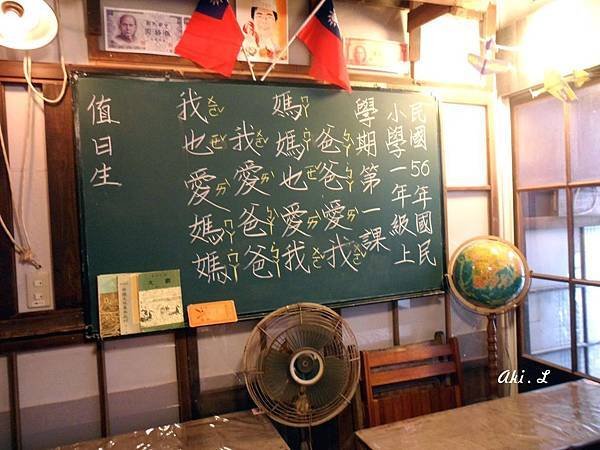 民國56年國民
小學一年級上
學期第一課
爸爸愛我
媽媽也愛我
我愛爸爸
我也愛媽媽
值日生
Aki.L